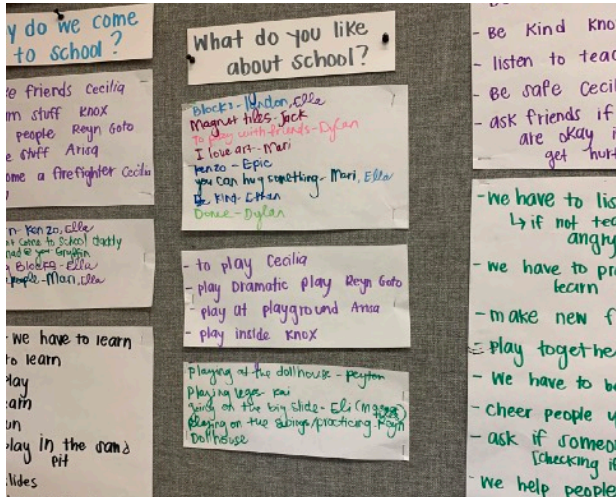 y do we come
to school?
e friends Cecilia
rn stuff Knox
people Reyn Goto
e stuff Arisa
ome a firefighter Cecilia
n - Kenzo, Ella
come to School daddy
Griffin
Blocks - Ella
people - Mari, Ella
- we have to learn
to learn
play
earn
un
play in the sand
pit
slides
What do you like
about school?
Blocks - lyndon, Ella
Magnet tiles - Jack
To play with friends - Dylan
I love art - Mari
Kenzo - Epic
you can hug something - Mari, Ella
Be Kind - Ethan
Dance - Dylan
- to play Cecilia
- play Dramatic play Reyn Goto
- play at playground Arisa
- play inside Knox
playing at the dollhouse - Peyton
Playing legos - Kai
going on the big slide - Eli
playing on the swings/practicing - Reyn
Dollhouse
- Be Kind Kno
- listen to teac
- Be safe Cecil
- ask friends if
are okay
get hurt
- we have to lis
↳ if not tea
angry
- we have to pr
learn
- make new f
- Play togethe
- We have to be
- cheer people u
- ask if someo
[checking if
We help people